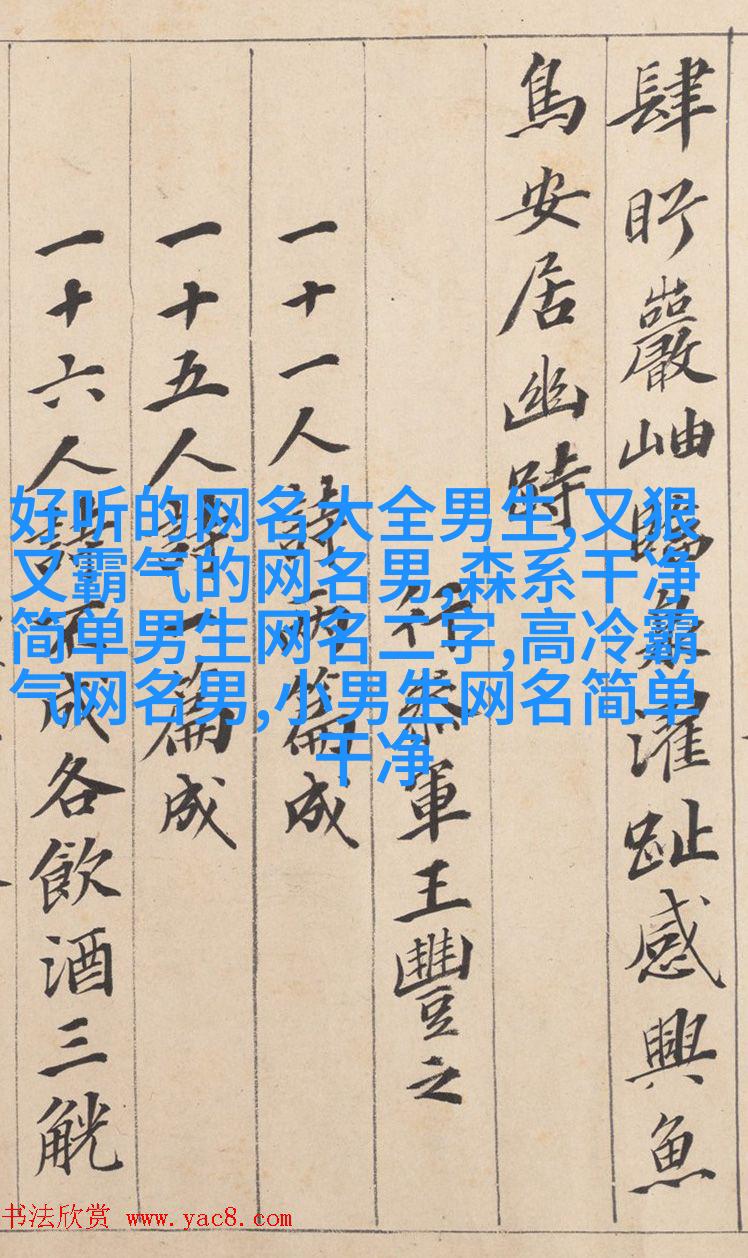 肆眄巖岫臨泉濯趾感興魚
鳥安居幽跱
行參軍王豐之
一十一人詩兩篇成
一十五人詩一篇成
一十六人詩不成各飲酒三觥
好听的网名大全男生,又狠
又霸气的网名男,森系干净
简单男生网名二字,高冷霸
气网名男,小男生网名简单
干净
书法欣赏 www.yac8.com